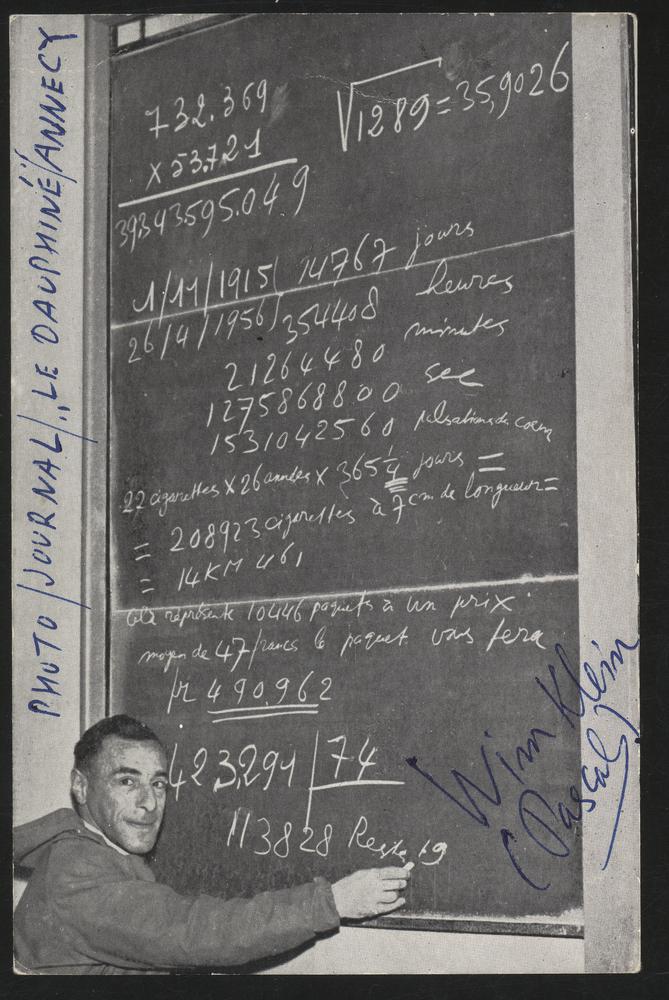 PHOTO / JOURNAL / „LE DAUPHINÉ" / ANNECY
732.369
x 53.721
39343.595.049
√1289 = 35,9026
1/11/1915 14767 jours
26/4/1956 354408 heures
21264480 minutes
1275868800 sec
1531042560 pulsations du coeur
22 cigarettes x 26 années x 365 1/4 jours =
= 208923 cigarettes à 7 cm de longueur =
= 14 KM 461
représente 10446 paquets à un prix
moyen de 47 francs le paquet vous fera
fr 490.962
423.291 | 74
113828 Reste 19
Wim Klein
(Pascal)